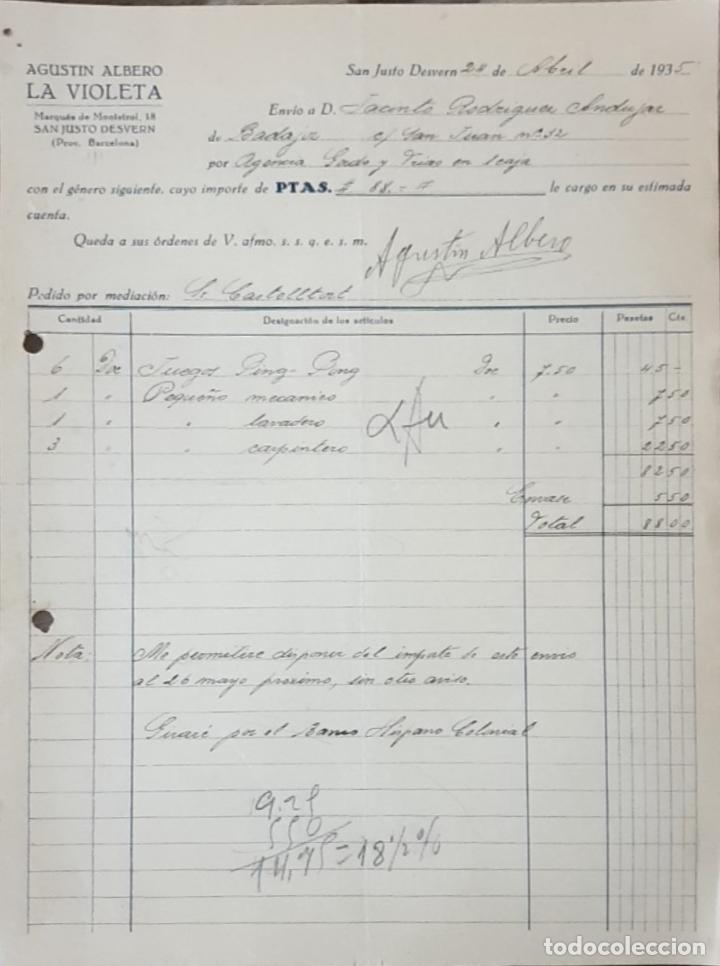 AGUSTIN ALBERO
LA VIOLETA
Marqués de Monistrol, 18
SAN JUSTO DESVERN
(Prov. Barcelona)
San Justo Desvern 24 de Abril de 1935
Envío a D. Jacinto Rodriguez Andujar
de Badajoz c/ San Juan nº 32
por Agencia y en 1 caja
con el género siguiente, cuyo importe de PTAS. # 88.- # le cargo en su estimada
cuenta.
Queda a sus órdenes de V. afmo. s. s. q. e. s. m.
Agustin Albero
Pedido por mediación: Sr Castelltort
Cantidad Designación de los artículos Precio Pesetas Cts.
6 Doc Juegos Ping-Pong Doc 7.50 45 -
1 " Pequeño mecanico " " 7 50
1 " " lavadero " " 7 50
3 " " carpintero " " 22 50
82 50
Envase 5 50
Total 88 00
Nota: Me permitire disponer del importe de este envio
al 26 mayo proximo, sin otro aviso.
Giraré por el Banco Hispano Colonial
9.25
550
14,75 = 18 1/2 %
todocoleccion